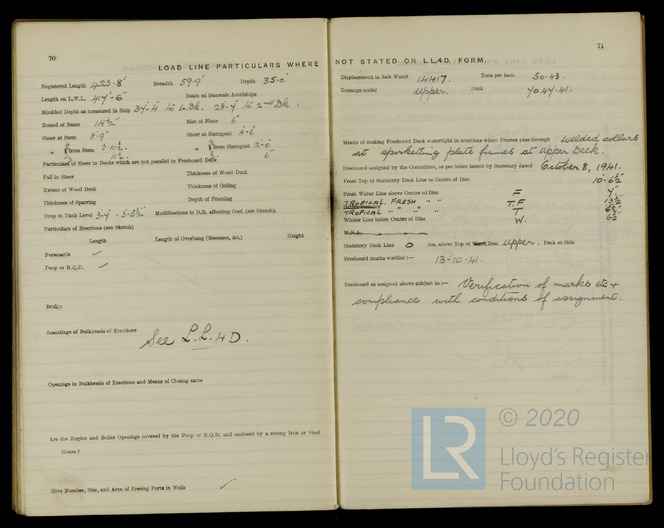 70
LOAD LINE PARTICULARS WHERE
Registered Length 423·8' Breadth 59·9' Depth 35·0'
Length on L.W.L. 417'-6" Beam at Gunwale Amidships
Moulded Depth as measured in Ship 37'-4 to U.Dk. 28'-4 to 2nd Dk.
Round of Beam 14½" Rise of Floor 6"
Sheer at Stem 8'-9" Sheer at Sternpost
from Stem from Sternpost 2'-0"
6"
Particulars of Sheer in Decks which are not parallel to Freeboard Deck
Fall in Sheer Thickness of Wood Deck
Extent of Wood Deck Thickness of Ceiling
Thickness of Sparring Depth of Framing
Drop in Tank Level Modifications in D.B. affecting Coef. (see Sketch).
Particulars of Erections (see Sketch)
Length Length of Overhang (Recesses, &c.) Height
Forecastle
Poop or R.Q.D.
Bridge
Scantlings of Bulkheads of Erections
See L.L.4D.
Openings in Bulkheads of Erections and Means of Closing same
Are the Engine and Boiler Openings covered by the Poop or R.Q.D. and enclosed by a strong Iron or Steel
House?
Give Number, Size, and Area of Freeing Ports in Wells
71
NOT STATED ON L.L.4D. FORM.
Displacement in Salt Water 14417. Tons per inch 50·43.
Tonnage under Upper. Deck 7047·41.
Means of making Freeboard Deck watertight in erections when Frames pass through welded collars
at spurketting plate frames at Upper Deck.
Freeboard assigned by the Committee, as per letter issued by Secretary dated October 8, 1941.
From Top of Statutory Deck Line to Centre of Disc 10'-6½"
Fresh Water Line above Centre of Disc F
TROPICAL FRESH " " T.F 13½"
TROPICAL " " " T
Winter Line below Centre of Disc W. 6½"
Statutory Deck Line 0 ins. above Top of Iron Upper. Deck at Side
Freeboard marks verified :— 13-10-41.
Freeboard as assigned above subject to :— Verification of marks etc +
compliance with conditions of assignment.
LR
© 2020
Lloyd's Register
Foundation